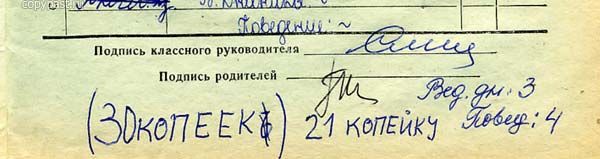 Поведение: ~
Подпись классного руководителя
Подпись родителей
Вед. дн: 3
(30 КОПЕЕК) 21 КОПЕЙКУ Повед: 4